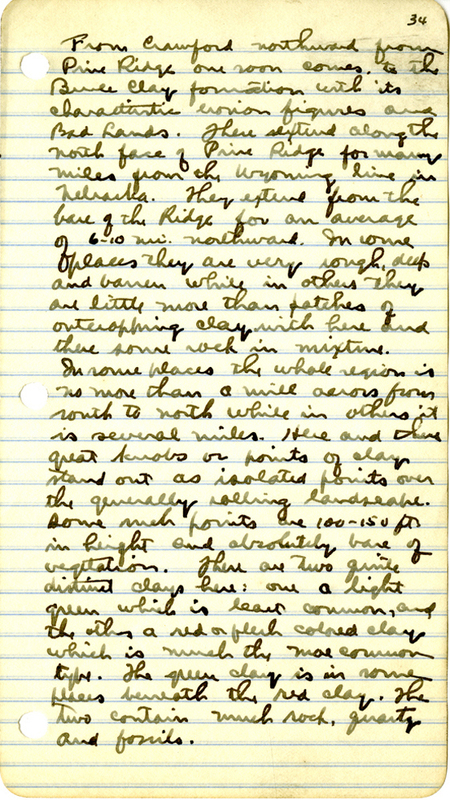 34
From Crawford northward from
Pine Ridge one soon comes to the
Brule Clay formation with its
characteristic erosion figures and
Bad Lands. These extend along the
north face of Pine Ridge for many
miles from the Wyoming line in
Nebraska. They extend from the
base of the Ridge for an average
of 6-10 mi. northward. In some
places they are very rough, deep
and barren while in others they
are little more than patches of
outcropping clay with here and
there some rock in mixture.
In some places the whole region is
no more than a mile across from
south to north while in others it
is several miles. Here and there
great knobs or points of clay
stand out as isolated points over
the generally rolling landscape.
Some such points are 100-150 ft
in height and absolutely bare of
vegetation. There are two quite
distinct clays here: one a light
green which is least common, and
the other a red or flesh colored clay
which is much the more common
type. The green clay is in some
places beneath the red clay. The
two contain much rock, quartz
and fossils.